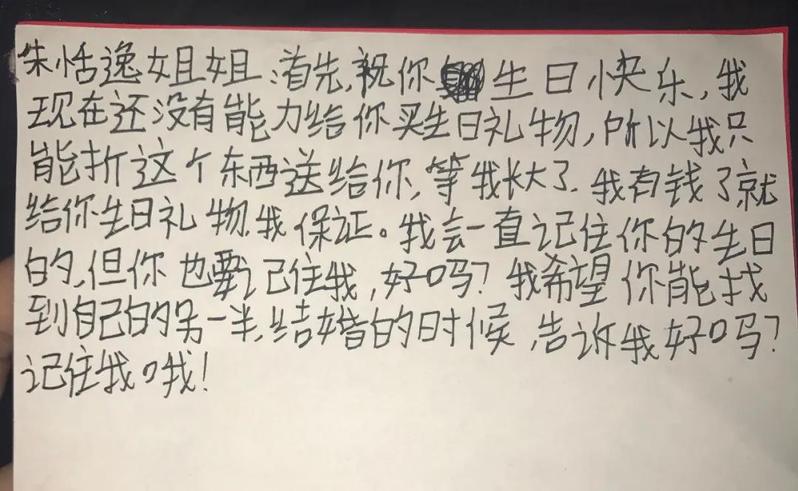 朱恬逸姐姐:首先,祝你生日快乐,我
现在还没有能力给你买生日礼物,所以我只
能折这个东西送给你,等我长大了.我有钱了就
给你生日礼物,我保证。我会一直记住你的生日
的,但你也要记住我,好吗?我希望你能找
到自己的另一半,结婚的时候,告诉我好吗?
记住我哦!